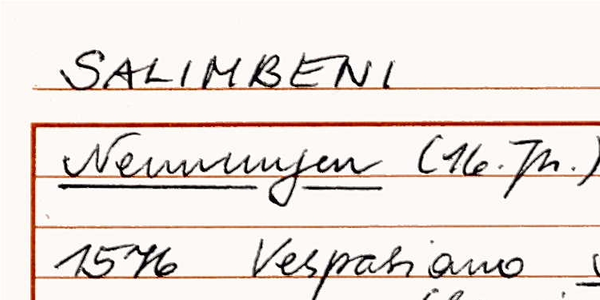 SALIMBENI
Nennungen (16. Jh.)
1576 Vespasiano